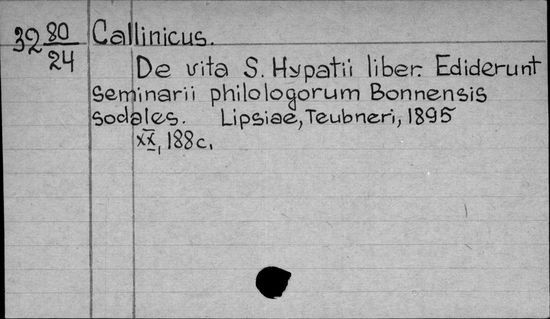 32 80/24 Callinicus.
De vita S. Hypatii liber. Ediderunt
seminarii philologorum Bonnensis
sodales. Lipsiae, Teubneri, 1895
XX, 188c.